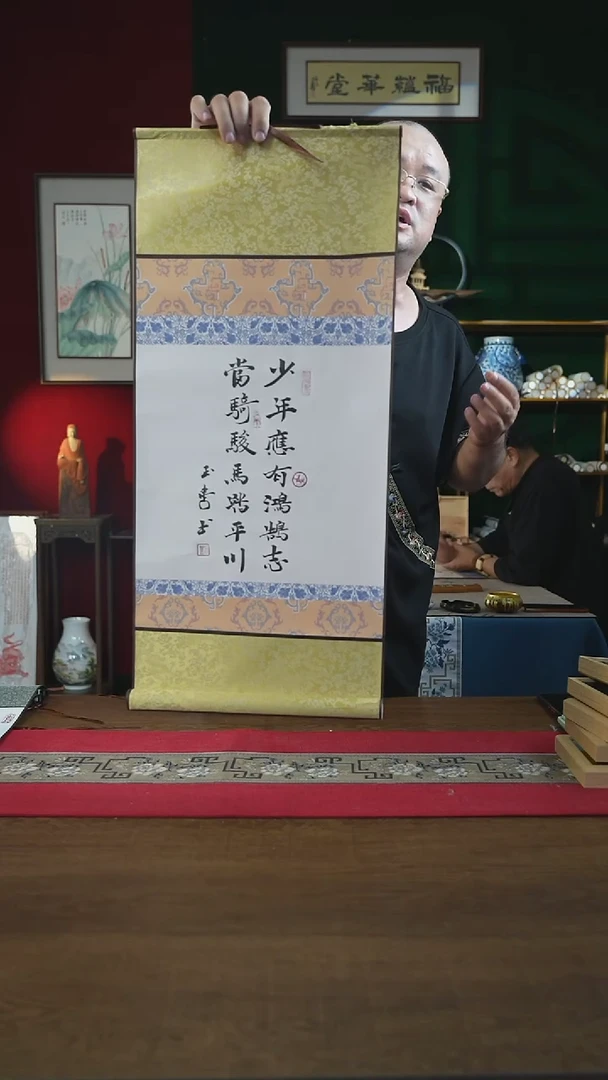 福韃華堂
少年應有鴻鵠志
當騎駿馬踏平川
玉書书